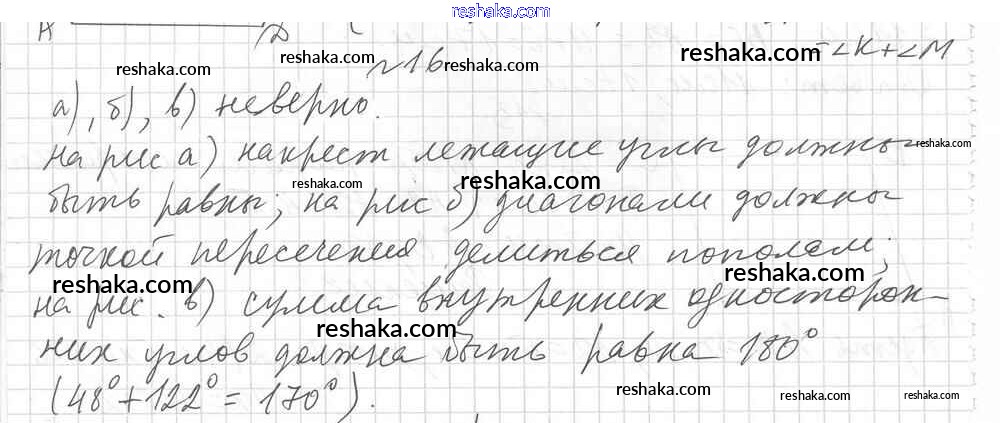 reshaka.com
№16
= ∠K + ∠M
а), б), в) неверно.
на рис а) накрест лежащие углы должны
быть равны; на рис б) диагонали должны
точкой пересечения делиться пополам;
на рис. в) сумма внутренних односторон-
них углов должна быть равна 180°
(48° + 122° = 170°).
reshaka.com
reshaka.com
reshaka.com
reshaka.com
reshaka.com
reshaka.com
reshaka.com
reshaka.com
reshaka.com
reshaka.com
reshaka.com